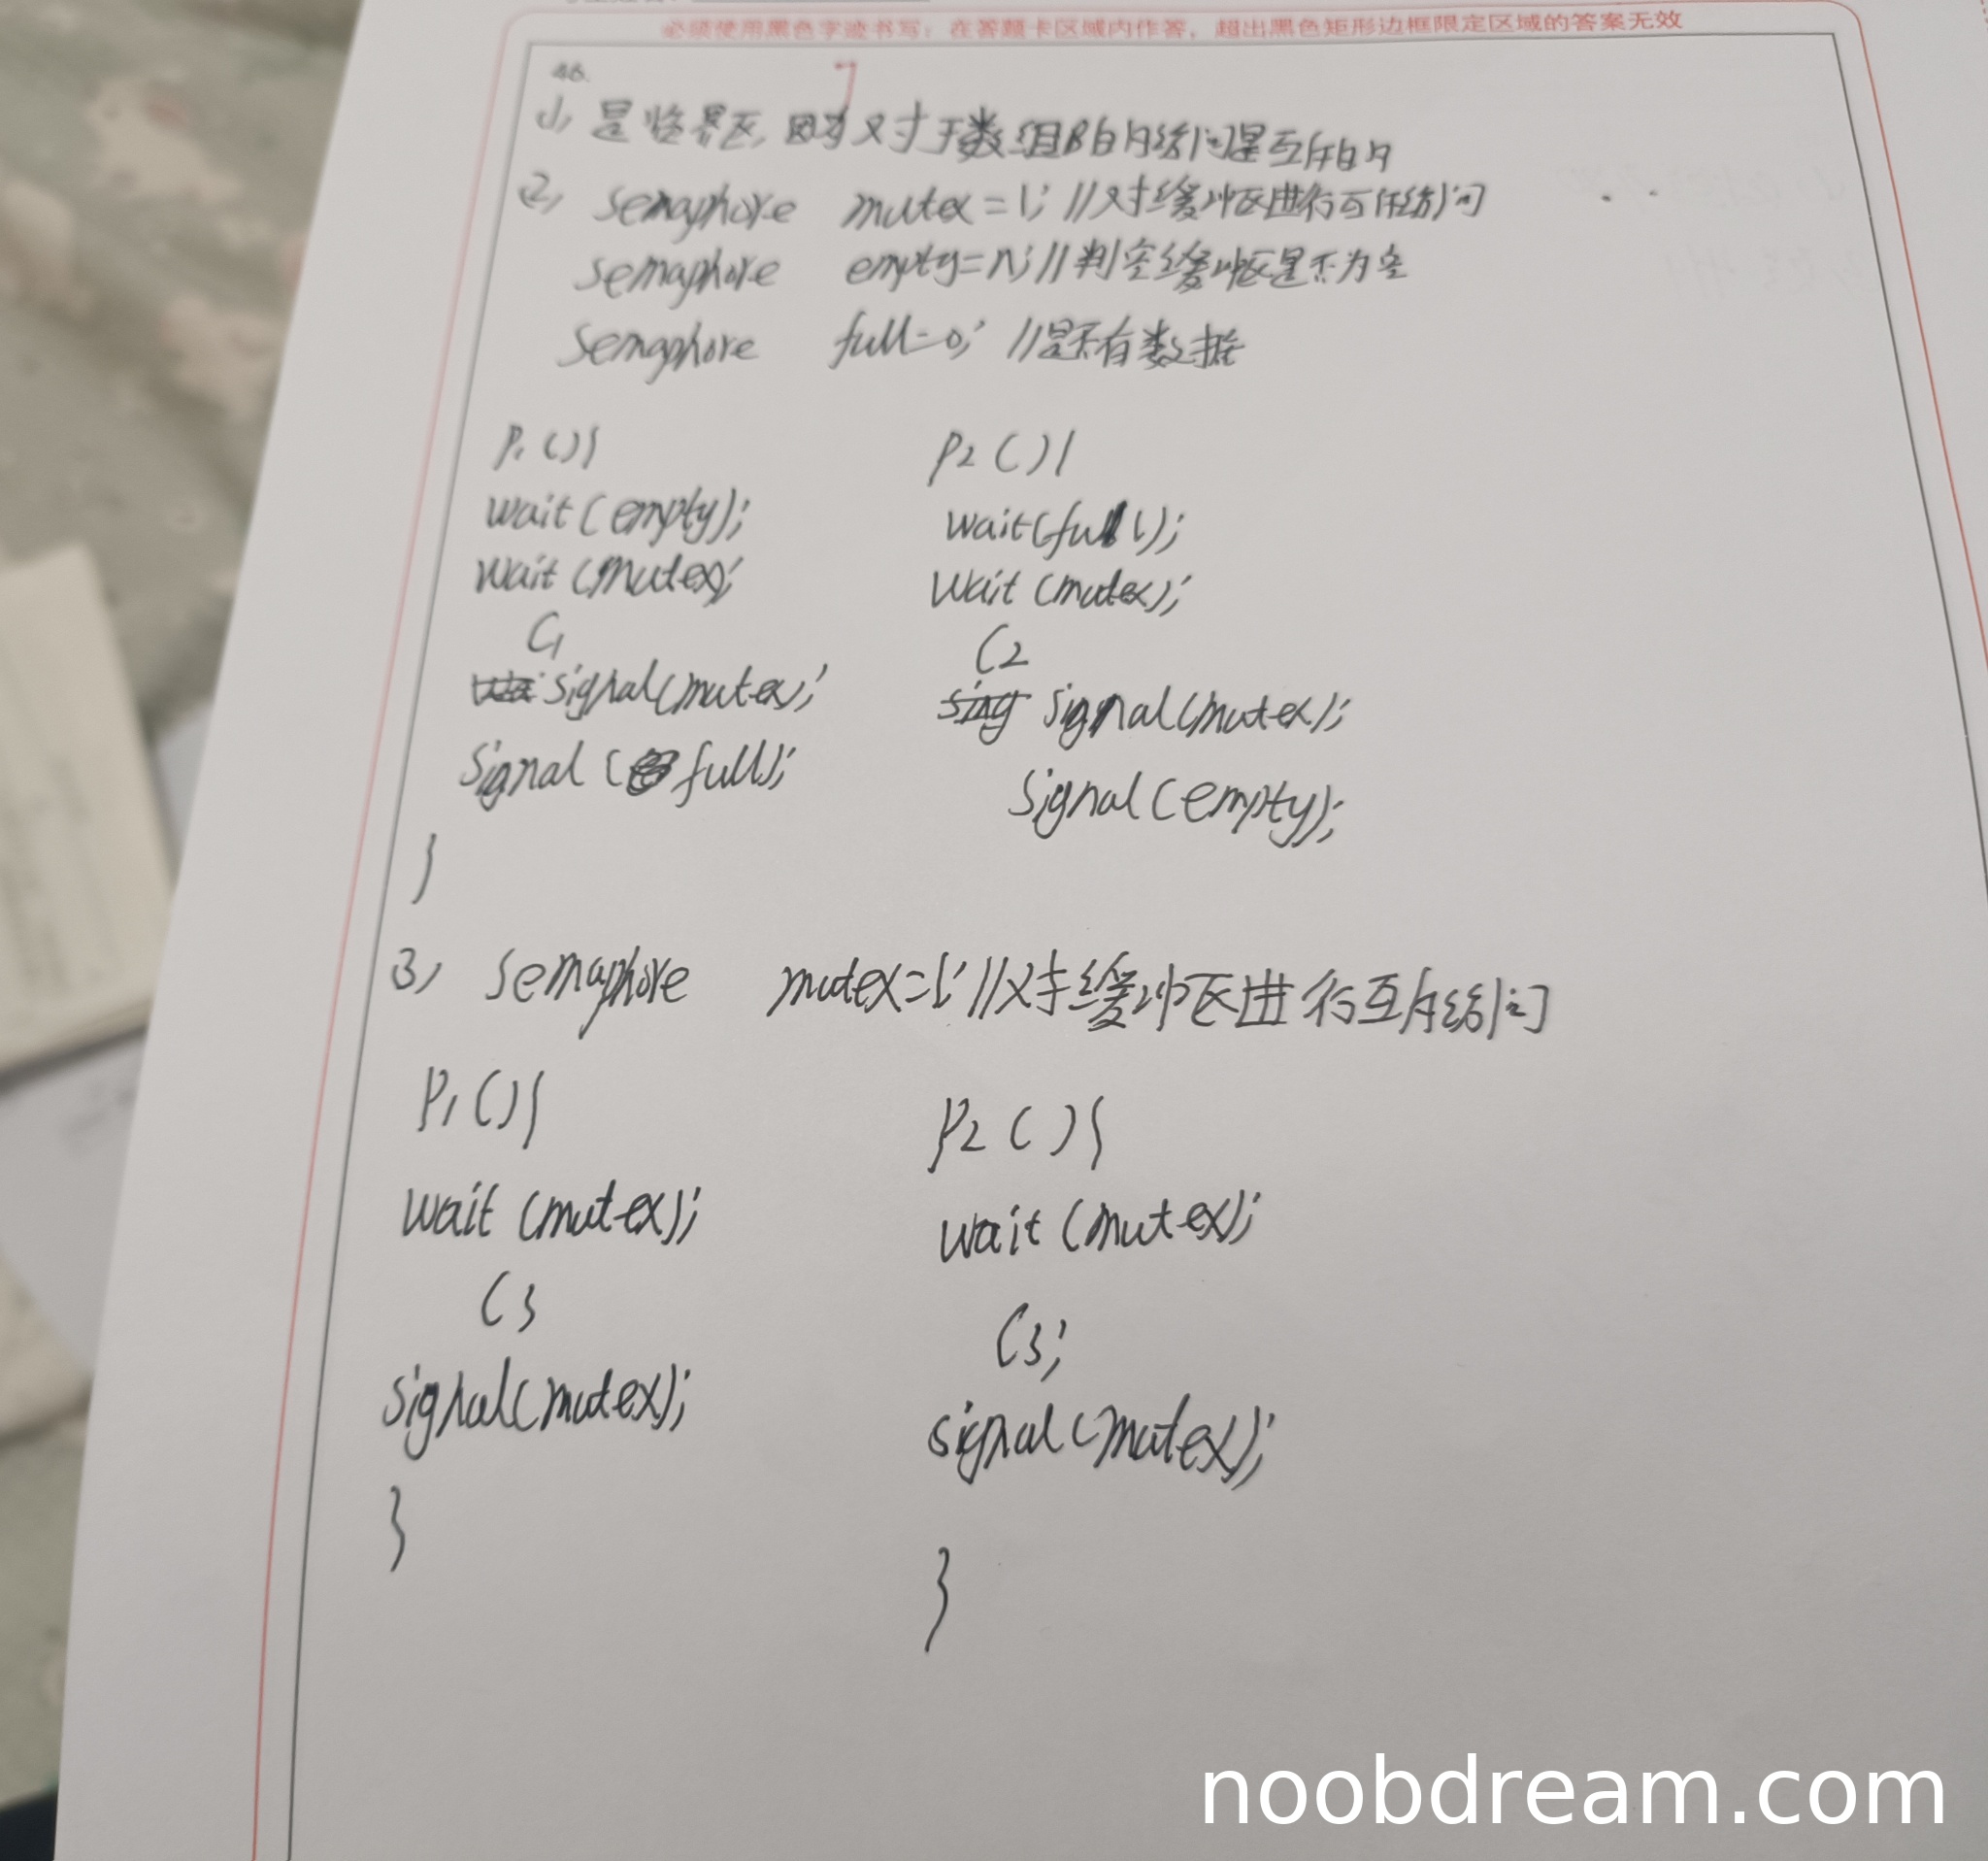 必须使用黑色字迹书写；在答题卡区域内作答，超出黑色矩形边框限定区域的答案无效
46.
1) 是临界区，因为对于数组B的访问是互斥的
2) semaphore mutex=1; //对缓冲区进行互斥访问
semaphore empty=n; //判空缓冲区是否为空
semaphore full=0; //是否有数据
P1(){
wait(empty);
wait(mutex);
C1
signal(mutex);
signal(full);
}
P2(){
wait(full);
wait(mutex);
C2
signal(mutex);
signal(empty);
3) semaphore mutex=1; //对缓冲区进行互斥访问
P1(){
wait(mutex);
C3
signal(mutex);
}
P2(){
wait(mutex);
C3;
signal(mutex);
}
noobdream.com